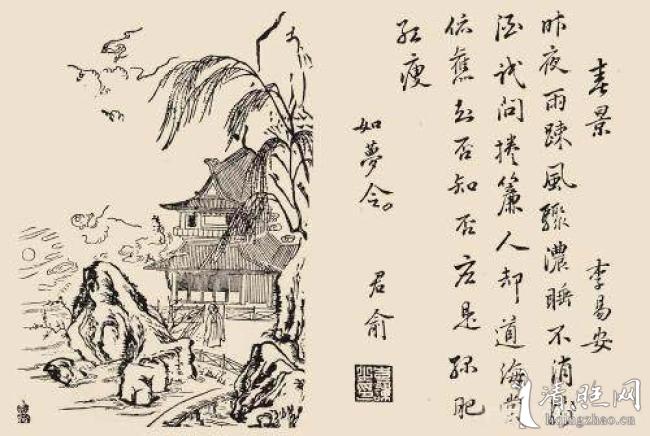 春景　李易安
昨夜雨踈風驟濃睡不消殘
酒試問捲簾人却道海棠
依舊知否知否应是綠肥
紅瘦
如夢令
君俞
liqingzhao.cn